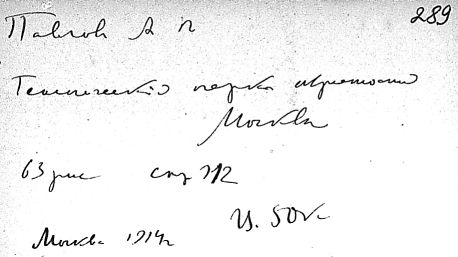 289
Павлов А П
Геологический очерк окрестностей
Москвы
63 рис стр 112
Ц. 50 к
Москва 1914 г